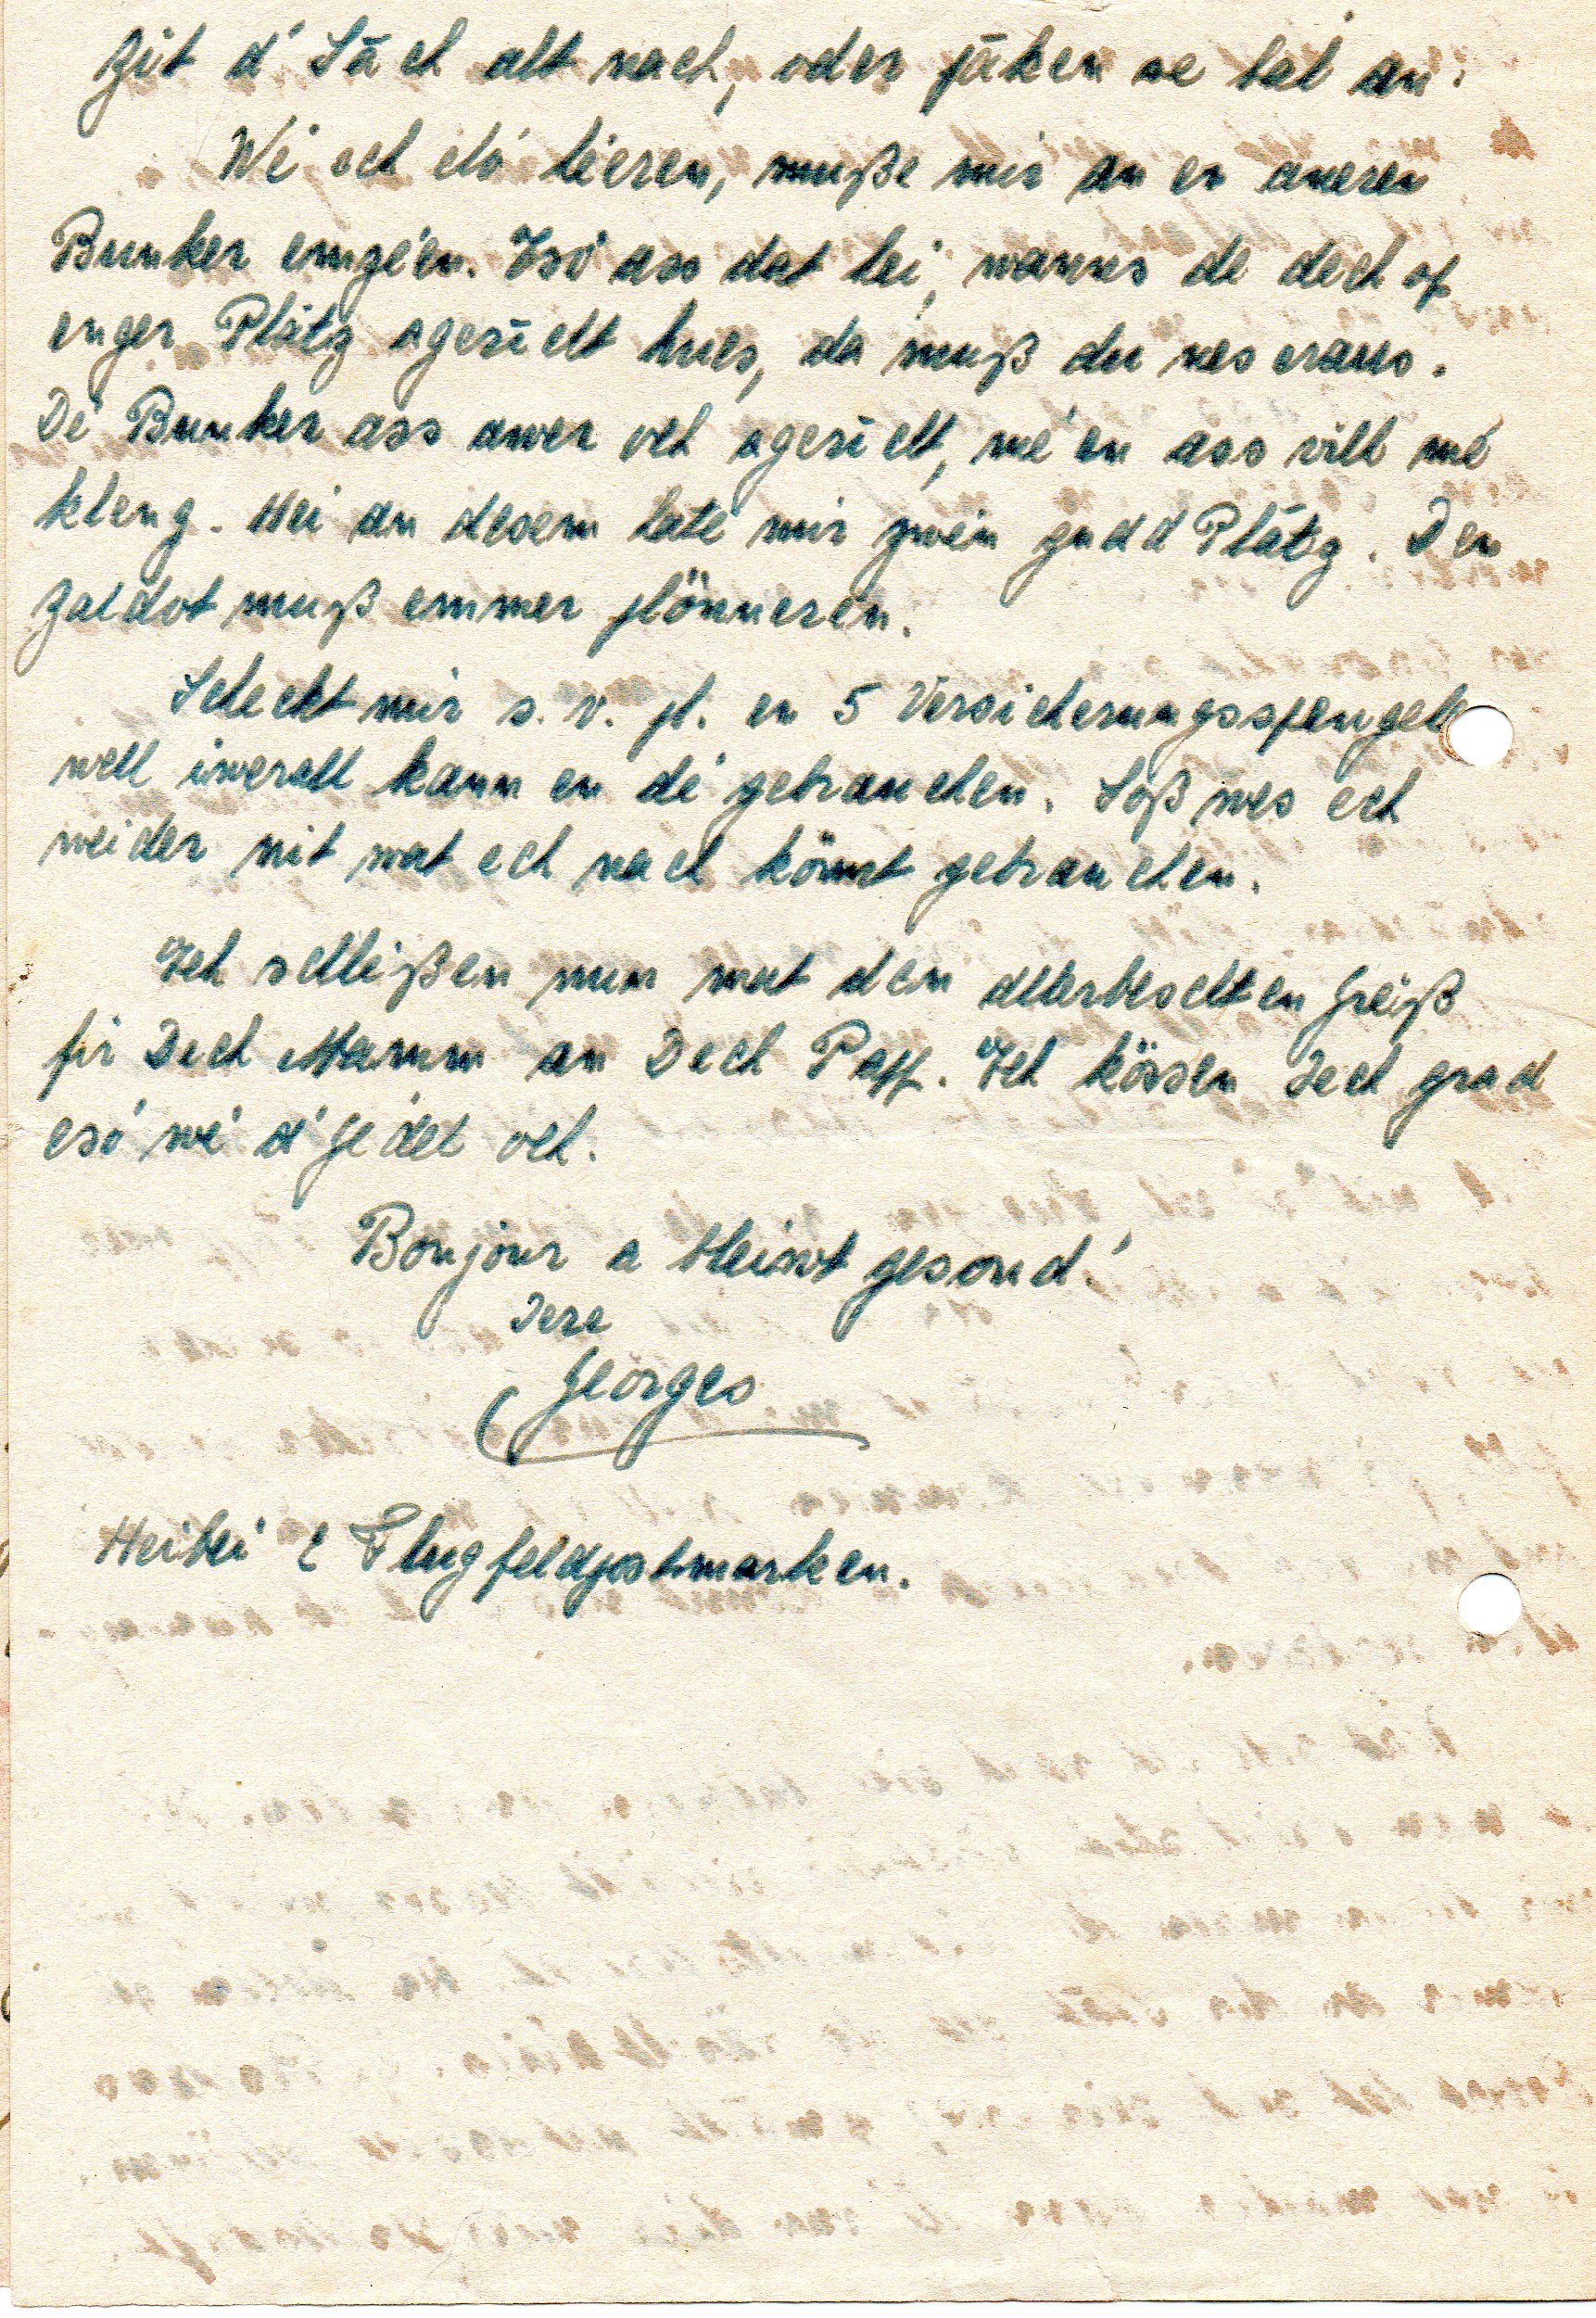 Zit d' Säch alt nach, oder päken se bal an.
Wé ech elo' héeren, muße mir an en aneren
Bunker emzéen. Eso' ass dat hei, wanns de dech op
enger Plätz agericht hues, da muß du nees eraus.
Dé Bunker ass awer och agericht, mé en ass vill mé
kleng. Hei an desem hate mir zwein gudd Plätz. Den
Zaldot muß emmer plönneren.
Scheckt mir s. v. pl. en 5 Versicherungsspengele
well iwerall kann en dé gebrauchen. Soß wes ech
weider nit wat ech nach könnt gebrauchen.
Ech schléißen nun mat dem allerbeschten Greiß
fir Dech Mamm an Dech Papp. Ech kössen Iech grad
eso' wé d' Gédel och.
Bonjour a bleiwt gesond!
Iere
Georges
Heibei 2 Flugfeldpostmarken.